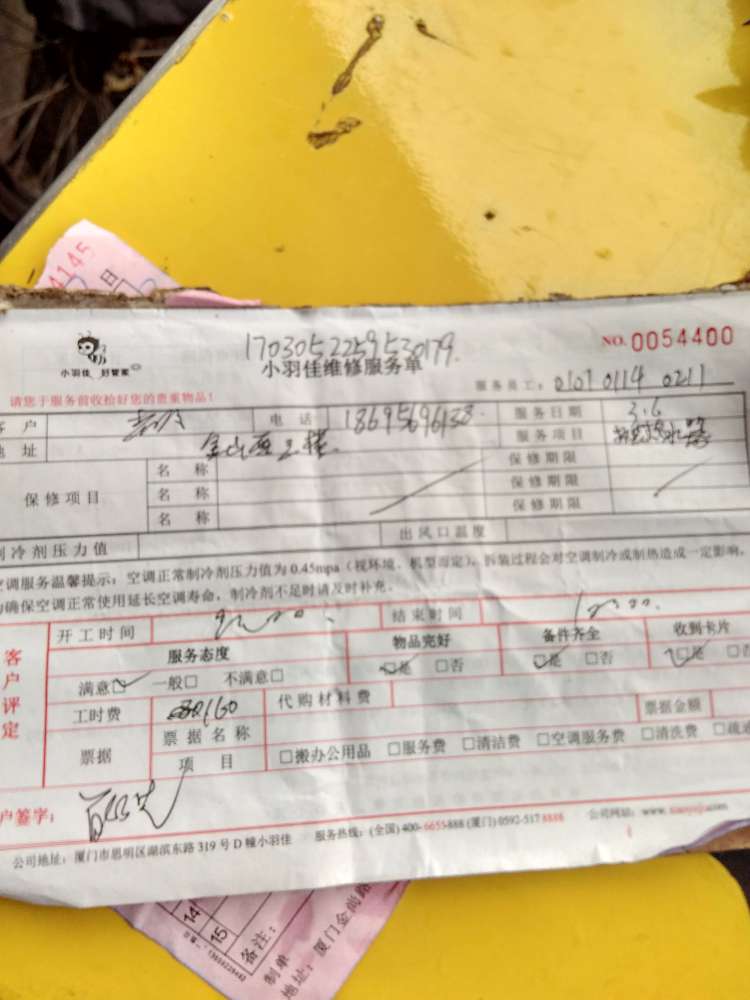 4145
日
1703052259530179.
小羽佳 好管家
小羽佳维修服务单
NO. 0054400
请您于服务前收拾好您的贵重物品!
服务员工: 0107 0114 0211
客 户
电 话
18695696138.
服务日期
3.6
地 址
服务项目
保修项目
名 称
保修期限
名 称
保修期限
名 称
保修期限
制冷剂压力值
出风口温度
空调服务温馨提示:空调正常制冷剂压力值为0.45mpa(视环境、机型而定),拆装过程会对空调制冷或制热造成一定影响,
为确保空调正常使用延长空调寿命,制冷剂不足时请及时补充.
客户评定
开工时间
结束时间
服务态度
物品完好
备件齐全
收到卡片
满意□ 一般□ 不满意□
□是 □否
□是 □否
□是 □否
工时费
160
代购材料费
票据金额
票据
票据名称
项 目
□搬办公用品 □服务费 □清洁费 □空调服务费 □清洗费 □疏通
客户签字:
公司地址:厦门市思明区湖滨东路319号D幢小羽佳
服务热线:(全国)400-6655888 (厦门)0592-5178888
公司网站:www.xiaoyujia.com
14
15
备注:
制单
地址:厦门金尚路